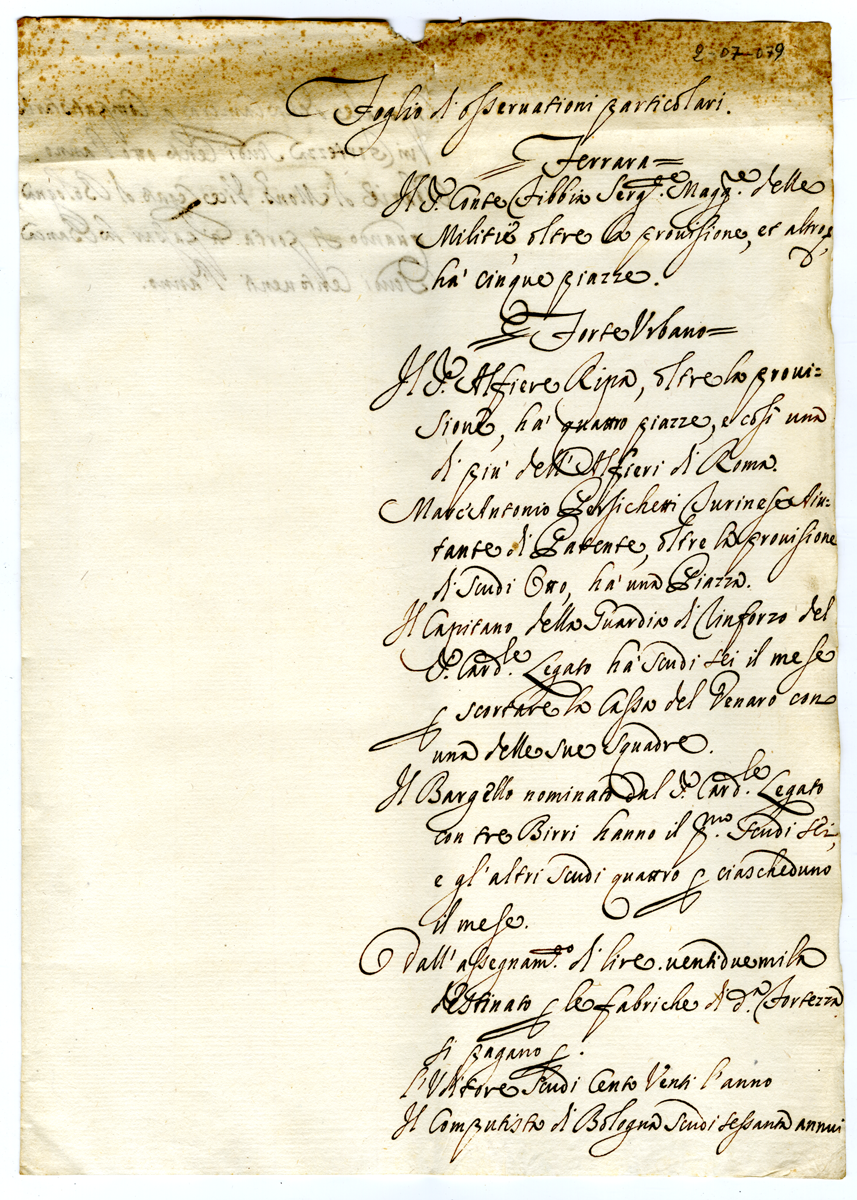 2-07-079
Foglio di osseruationi particolari.
= Ferrara =
Il S.r Conte Fibbia Serg.te Magg.re delle
Militie, oltre la prouisione, et altro,
ha' cinque piazze.
= Forte Vrbano =
Il S.r Alfiere Ripa, oltre la proui=
sione, ha' quattro piazze, e così una
di piu' dell'Alfieri di Roma.
Marc'Antonio Persichetti Aiu-
tante di Patente, oltre la prouisione
di Scudi Otto, ha' una Piazza.
Il Capitano della Guardia di Rinforzo del
S.r Card.le Legato ha' scudi sei il mese
p scortare la Cassa del Denaro con
una delle sue squadre.
Il Bargello nominato dal S.r Card.le Legato
con tre Birri hanno il p.mo scudi sei,
e gl'altri scudi quattro p ciascheduno
il mese.
Dall'assegnam.to di lire uentiduemila
destinato p le fabriche di d.a Fortezza
si pagano p.
l'Vditore Scudi Cento Venti l'anno
Il Computista di Bologna Scudi sessanta annui